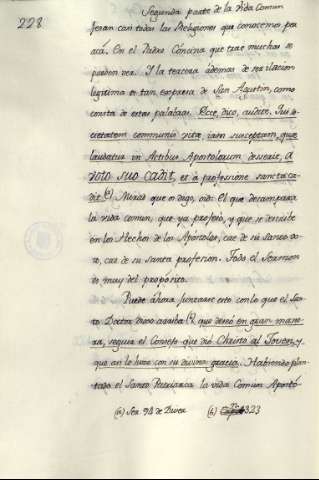 Segunda parte de la Vida Comun
228
feran casi todas las Religiones que conocemos por
acá. En el Padre Concina que trae muchas se
pueden ver. Y la tercera ademas de ser ilacion
legitima es tan expresa de San Agustin, como
consta de estas palabras. Ecce, dico, audite. Qui so-
cietatem communis vitæ, iam susceptam, quæ
laudatur in Actibus Apostolorum deserit, a
voto suo cadit, et a professione sancta ca-
dit. Mirad que os digo, oid: El que desampara
la vida comun, que ya profesó, y que se describe
en los Hechos de los Apóstoles, cae de su santo vo-
to, cae de su santa profesion. Todo el Sermon
es muy del propósito.
Puede ahora juntarse esto con lo que el San-
to Doctor dixo arriba que deseó en gran mane-
ra, seguir el Consejo que dió Christo al Joven, y
que asi lo hizo con su divina gracia. Habiendo plan-
tado el Santo Patriarca la vida Comun Apostó
(a) Ser. 94 de Divers. (b) 323